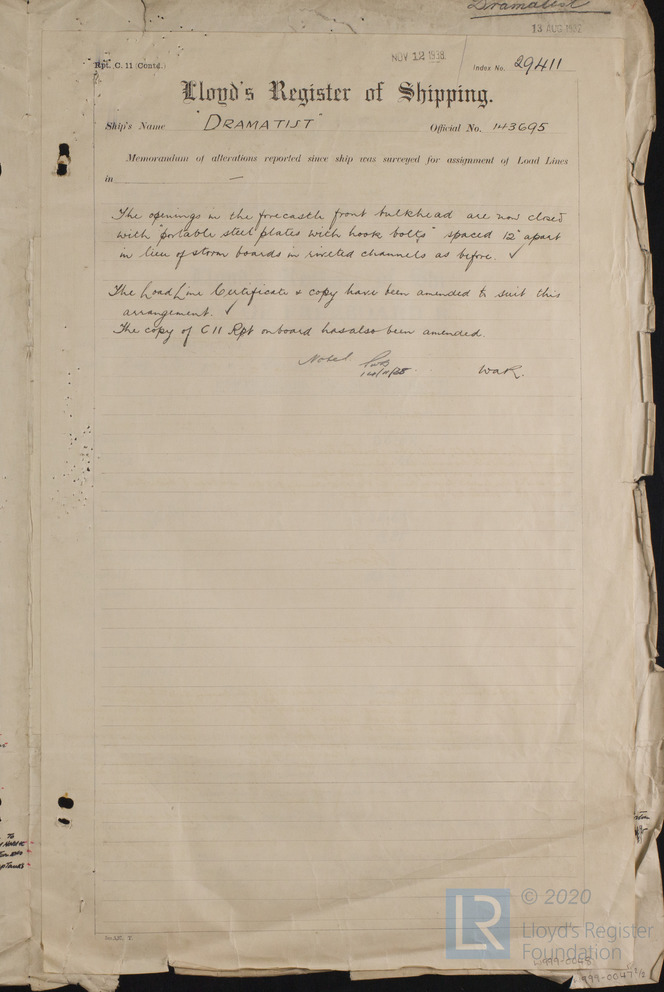 Dramatist
13 AUG 1932
NOV 12 1938
Rpt. C. 11 (Contd.)
Index No. 29411
Lloyd's Register of Shipping.
Ship's Name "DRAMATIST" Official No. 143695
Memorandum of alterations reported since ship was surveyed for assignment of Load Lines
in —
The openings in the forecastle front bulkhead are now closed
with "portable steel plates with hook bolts" spaced 12" apart
in lieu of storm boards in riveted channels as before. ✓
The Load Line Certificate & copy have been amended to suit this
arrangement. ✓
The copy of C 11 Rpt on board has also been amended.
Noted
14/11/38
WAR.
© 2020
LR
Lloyd's Register
Foundation